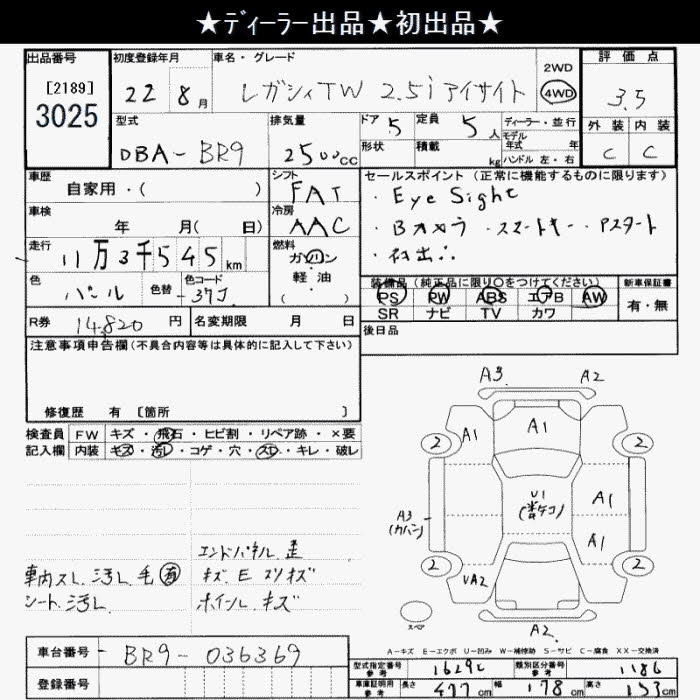 ★ディーラー出品★初出品★
出品番号
[2189]
3025
初度登録年月
22 8月
車名・グレード
レガシィTW 2.5i アイサイト
2WD
4WD
評価点
3.5
外装 内装
C C
型式
DBA-BR9
排気量
2500cc
ドア 5
形状
定員 5人
積載 kg
ディーラー・並行
モデル
年式 年
ハンドル 左・右
車歴
自家用・( )
シフト
FAT
車検
年 月( 日)
冷房
AAC
走行
11万3千545km
燃料
ガソリン
軽・油
( )
色
パール
色替
色コード
37J
R券 14,820円
名変期限 月 日
セールスポイント(正常に機能するものに限ります)
・Eye Sight
・Bカメラ ・スマートキー ・Pスタート
装備品(純正品に限り○をつけてください)
PS PW ABS エアB AW
SR ナビ TV カワ
新車保証書
有・無
後日品
注意事項申告欄(不具合内容等は具体的に記入して下さい)
修復歴 有 [箇所 ]
検査員 FW キズ・飛石・ヒビ割・リペア跡・×要
記入欄 内装 キズ・汚レ・コゲ・穴・スレ・キレ・破レ
エンドパネル 歪
車内スレ 汚レ 毛有
キズ E スリキズ
シート 汚レ
ホイール キズ
A3 A2
2 A1 A1 2
U1
A1
A3
A1
2 UA2 2
スペア
A2
A-キズ E-エクボ U-凹み W-補修跡 S-サビ C-腐食 XX-交換済
車台番号 BR9-036369
登録番号
型式指定番号
参考
類別区分番号
参考
1186
車庫証明用
参考
長さ 477cm 幅 178cm 高さ 153cm